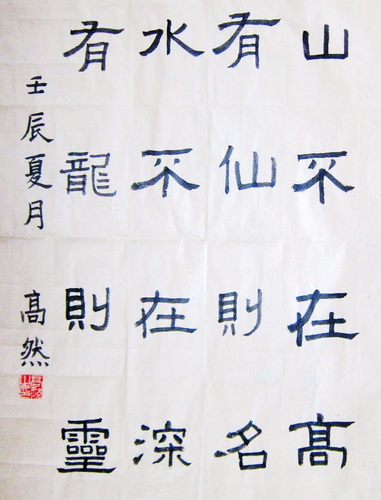 山不在高
有仙則名
水不在深
有龍則靈
壬辰夏月 高然